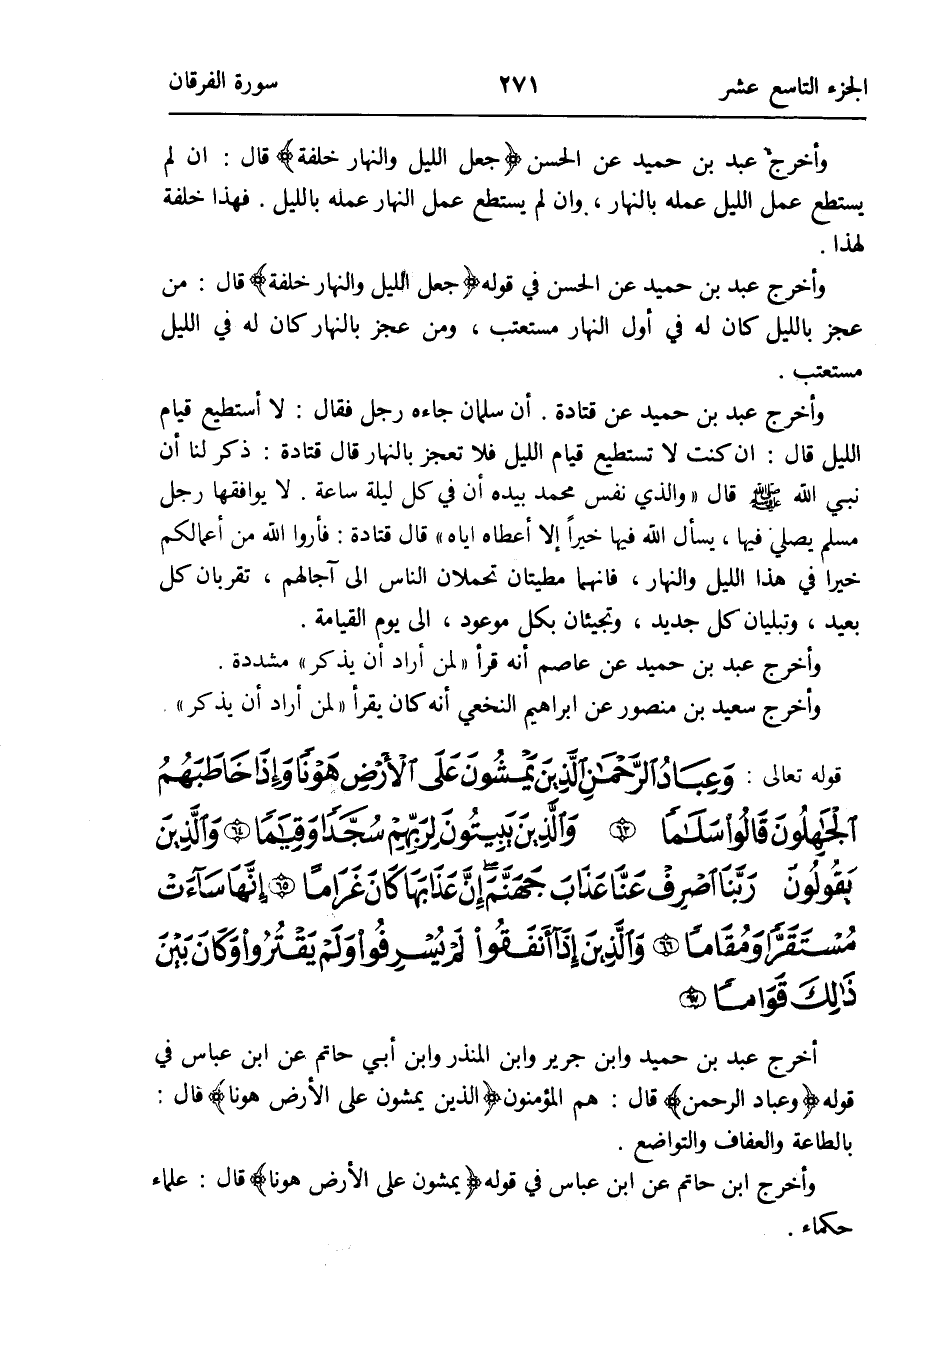 الجزء التاسع عشر ٢٧١ سورة الفرقان
وأخرج عبد بن حميد عن الحسن ﴿جعل الليل والنهار خلفة﴾ قال : ان لم
يستطع عمل الليل عمله بالنهار ، وان لم يستطع عمل النهار عمله بالليل . فهذا خلفة
لهذا .
وأخرج عبد بن حميد عن الحسن في قوله ﴿جعل الليل والنهار خلفة﴾ قال : من
عجز بالليل كان له في أول النهار مستعتب ، ومن عجز بالنهار كان له في الليل
مستعتب .
وأخرج عبد بن حميد عن قتادة . أن سلمان جاءه رجل فقال : لا أستطيع قيام
الليل قال : ان كنت لا تستطيع قيام الليل فلا تعجز بالنهار قال قتادة : ذكر لنا أن
نبي الله ﷺ قال «والذي نفس محمد بيده أن في كل ليلة ساعة . لا يوافقها رجل
مسلم يصلي فيها ، يسأل الله فيها خيراً إلا أعطاه اياه» قال قتادة : فأروا الله من أعمالكم
خيرا في هذا الليل والنهار ، فانهما مطيتان تحملان الناس الى آجالهم ، تقربان كل
بعيد ، وتبليان كل جديد ، وتجيئان بكل موعود ، الى يوم القيامة .
وأخرج عبد بن حميد عن عاصم أنه قرأ «لمن أراد أن يذكر» مشددة .
وأخرج سعيد بن منصور عن ابراهيم النخعي أنه كان يقرأ «لمن أراد أن يذكر» .
قوله تعالى : وَعِبَادُ ٱلرَّحْمَـٰنِ ٱلَّذِينَ يَمْشُونَ عَلَى ٱلْأَرْضِ هَوْنًا وَإِذَا خَاطَبَهُمُ
ٱلْجَـٰهِلُونَ قَالُوا۟ سَلَـٰمًا ٦٣ وَٱلَّذِينَ يَبِيتُونَ لِرَبِّهِمْ سُجَّدًا وَقِيَـٰمًا ٦٤ وَٱلَّذِينَ
يَقُولُونَ رَبَّنَا ٱصْرِفْ عَنَّا عَذَابَ جَهَنَّمَ ۖ إِنَّ عَذَابَهَا كَانَ غَرَامًا ٦٥ إِنَّهَا سَآءَتْ
مُسْتَقَرًّا وَمُقَامًا ٦٦ وَٱلَّذِينَ إِذَآ أَنفَقُوا۟ لَمْ يُسْرِفُوا۟ وَلَمْ يَقْتُرُوا۟ وَكَانَ بَيْنَ
ذَٰلِكَ قَوَامًا ٦٧
أخرج عبد بن حميد وابن جرير وابن المنذر وابن أبي حاتم عن ابن عباس في
قوله ﴿وعباد الرحمن﴾ قال : هم المؤمنون ﴿الذين يمشون على الأرض هونا﴾ قال :
بالطاعة والعفاف والتواضع .
وأخرج ابن حاتم عن ابن عباس في قوله ﴿يمشون على الأرض هونا﴾ قال : علماء
حكماء .